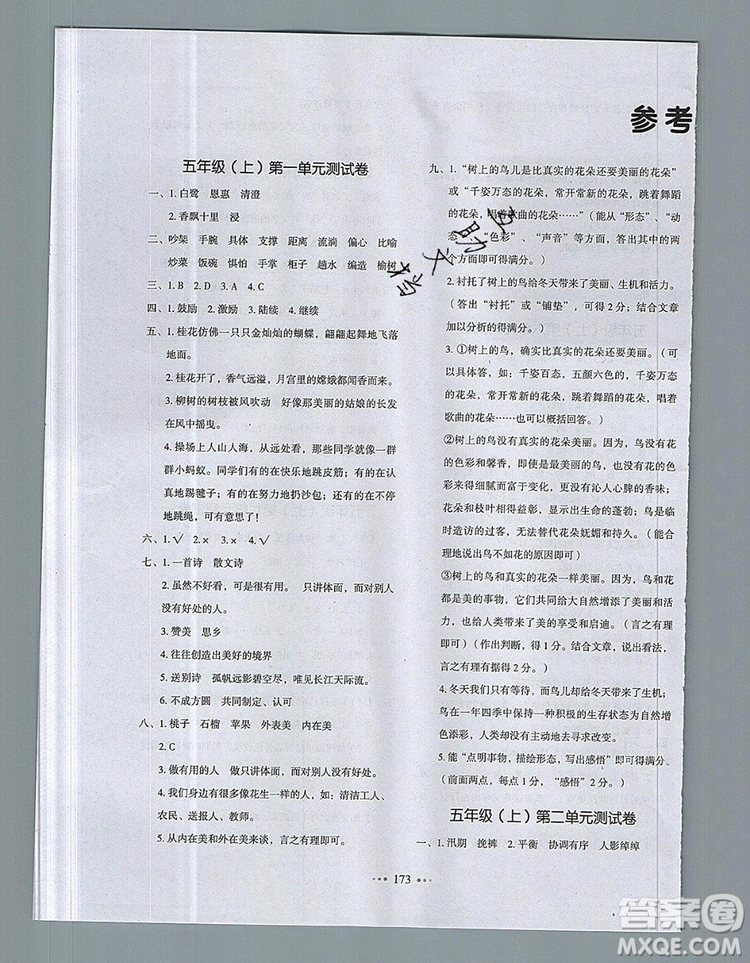 参考
五年级（上）第一单元测试卷
一、1.白鹭 恩惠 清澄
2.香飘十里 浸
二、吵架 手腕 具体 支撑 距离 流淌 偏心 比喻
炒菜 饭碗 惧怕 手掌 柜子 趟水 编造 榆树
三、1.B 2.D 3.A 4.C
四、1.鼓励 2.激励 3.陆续 4.继续
五、1.桂花仿佛一只只金灿灿的蝴蝶，翩翩起舞地飞落
地面。
2.桂花开了，香气远溢，月宫里的嫦娥都能闻香而来。
3.柳树的树枝被风吹动 好像那美丽的姑娘的长发
在风中摇曳。
4.操场上人山人海，从远处看，同学们都像一群
群小蚂蚁。同学们有的在快乐地跳皮筋；有的在认
真地踢毽子；有的在努力地扔沙包；有的在尽情
地跳绳，可有意思了！
六、1.√ 2.× 3.× 4.√
七、1.一首诗 散文诗
2.虽然不好看，可是很有用。 只讲体面，而对别人
没有好处的人。
3.赞美 思乡
4.往往创造出美好的境界
5.送别诗 孤帆远影碧空尽，唯见长江天际流。
6.不成方圆 共同制定、认可
八、1.桃子 石榴 苹果 外表美 内在美
2.C
3.做有用的人 做只讲体面，而对别人没有好处的人
4.我们身边有很多像花生一样的人，如：清洁工人、
农民、送报人、教师。
5.从内在美和外在美来谈，言之有理即可。
九、1.“树上的鸟儿是比真实的花朵还要美丽的花朵”
或“千姿万态的花朵，常开常新的花朵，跳着舞蹈
的花朵，唱着歌曲的花朵……”（能从“形态”、“动
态”、“色彩”、“声音”等方面，回答出其中的两
个方面即可得满分。）
2.衬托了树上的鸟给冬天带来了美丽、生机和活力。
（答出“衬托”或“铺垫”，可得2分；结合文章
加以分析的得满分。）
3.①树上的鸟比真实的花朵还要美丽。（可以
具体答：如，千姿百态，五颜六色的花朵，千姿万态
的花朵，常开常新的花朵，跳着舞蹈的花朵，唱着
歌曲的花朵……也可以概括回答。）
②树上的鸟不如真实的花朵美丽。因为，花朵具有
色彩和馨香，所以是最美丽的鸟，也没有花朵的色
彩来得细腻而富于变化，更没有沁人心脾的香味；
花朵和枝叶相得益彰，显示出生命的蓬勃，鸟是临
时造访的过客，无法替代花朵妩媚和持久。（能合
理地说出鸟不如花的原因即可）
③树上的鸟和真实的花朵一样美丽。因为，鸟和花
都是美的事物，它们共同给大自然增添了生机和活
力，也给人类带来了美的享受和启迪。（言之有理
即可）（作出判断，得1分。结合文章或生活体验，
言之有理得2分。）
4.冬天我们只有等待，而鸟儿却给冬天带来了生机；
鸟在一年四季中保持一种积极的生存状态为自然增
色添彩，而人类却没有主动地去寻求改变。
5.能“点明事物，描绘形态，写出感悟”即可得满分。
（前面两点，每点1分，“感悟”2分。）
五年级（上）第二单元测试卷
一、1.汛期 挽裤 2.平衡 协调有序 人影绰绰
173
答案圈
MXQE.COM